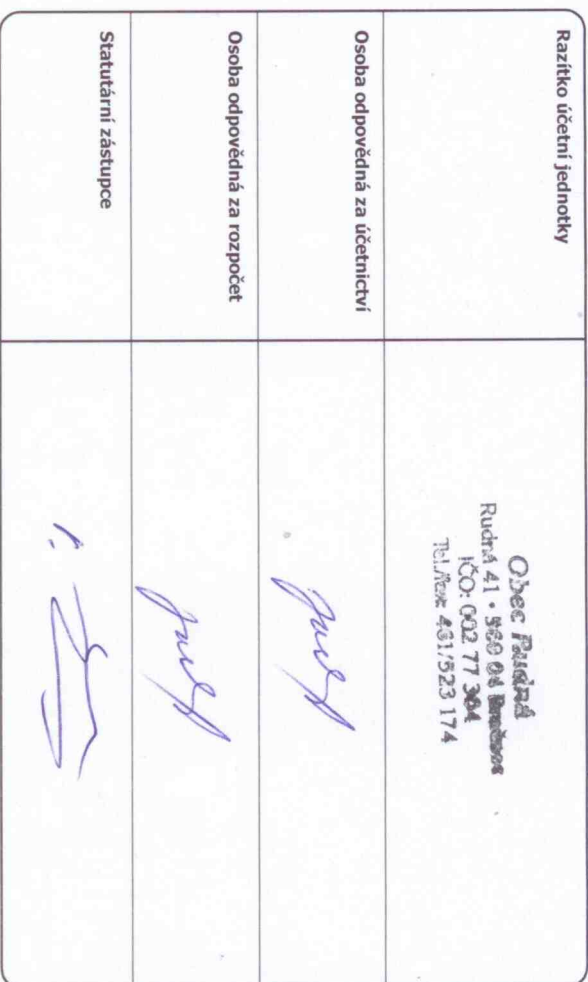 Razítko účetní jednotky
Obec Rudná
Rudná 41 • 569 04
IČO: 002 77 304
Tel./fax: 461/523 174
Osoba odpovědná za účetnictví
Osoba odpovědná za rozpočet
Statutární zástupce